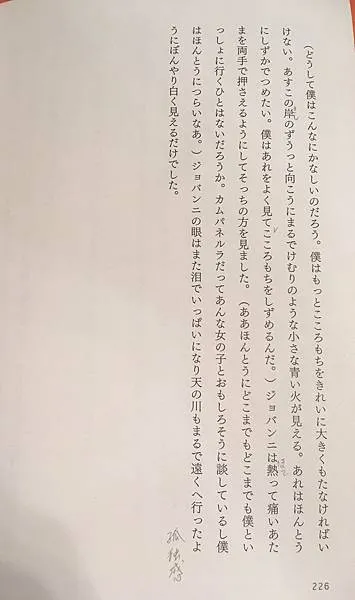 (どうして僕はこんなにかなしいのだろう。僕はもっとこころもちをきれいに大きくもたなければい
けない。あすこの岸のずうっと向こうにまるでけむりのような小さな青い火が見える。あれはほんとう
にしずかでつめたい。僕はあれをよく見てこころもちをしずめるんだ。)ジョバンニは熱って痛いあた
まを両手で押さえるようにしてそっちの方を見ました。(ああほんとうにどこまでもどこまでも僕とい
っしょに行くひとはないだろうか。カムパネルラだってあんな女の子とおもしろそうに談しているし僕
はほんとうにつらいなあ。)ジョバンニの眼はまた泪でいっぱいになり天の川もまるで遠くへ行ったよ
うにぼんやり白く見えるだけでした。
孤独感
226